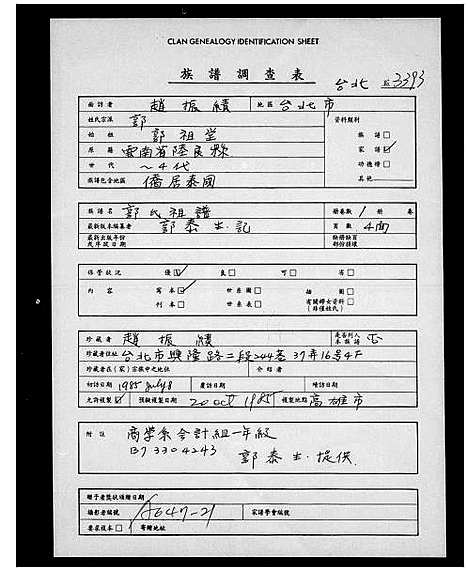 CLAN GENEALOGY IDENTIFICATION SHEET
族譜調查表
台北 3393
面訪者 趙振績 地區 台北市
姓氏宗派 郭 資料類別
始祖 郭祖堂 族譜
原籍 雲南省陸良縣 家譜
世代 ～4代 功德譜
族譜包含地區 僑居泰國 其他
族譜名 郭氏祖譜 冊卷數 1 冊 卷
最新版本編著者 郭泰生記 頁數 4面
最新出版年份 缺冊缺頁
或序跋日期 部份損壞
保管狀況 優 良 可 劣
內容 寫本 世系圖 插圖
刊本 世系表 有關婦女資料
珍藏者 趙振績 是否列入本族譜 否
珍藏者住址 台北市興隆路二段244巷37弄16号4F
珍藏者在(家)宗族中之地位 介紹者
初訪日期 1985 July 8 覆訪日期 續訪日期
允許複製 預擬複製日期 20 oct 1985 複製地點 高雄市
附註 商學系會計組一年級
B73304243
郭泰生提供
贈予者獎狀頒贈日期
攝影者編號 A647-21 家譜學會編號
要求複本 寄贈地址